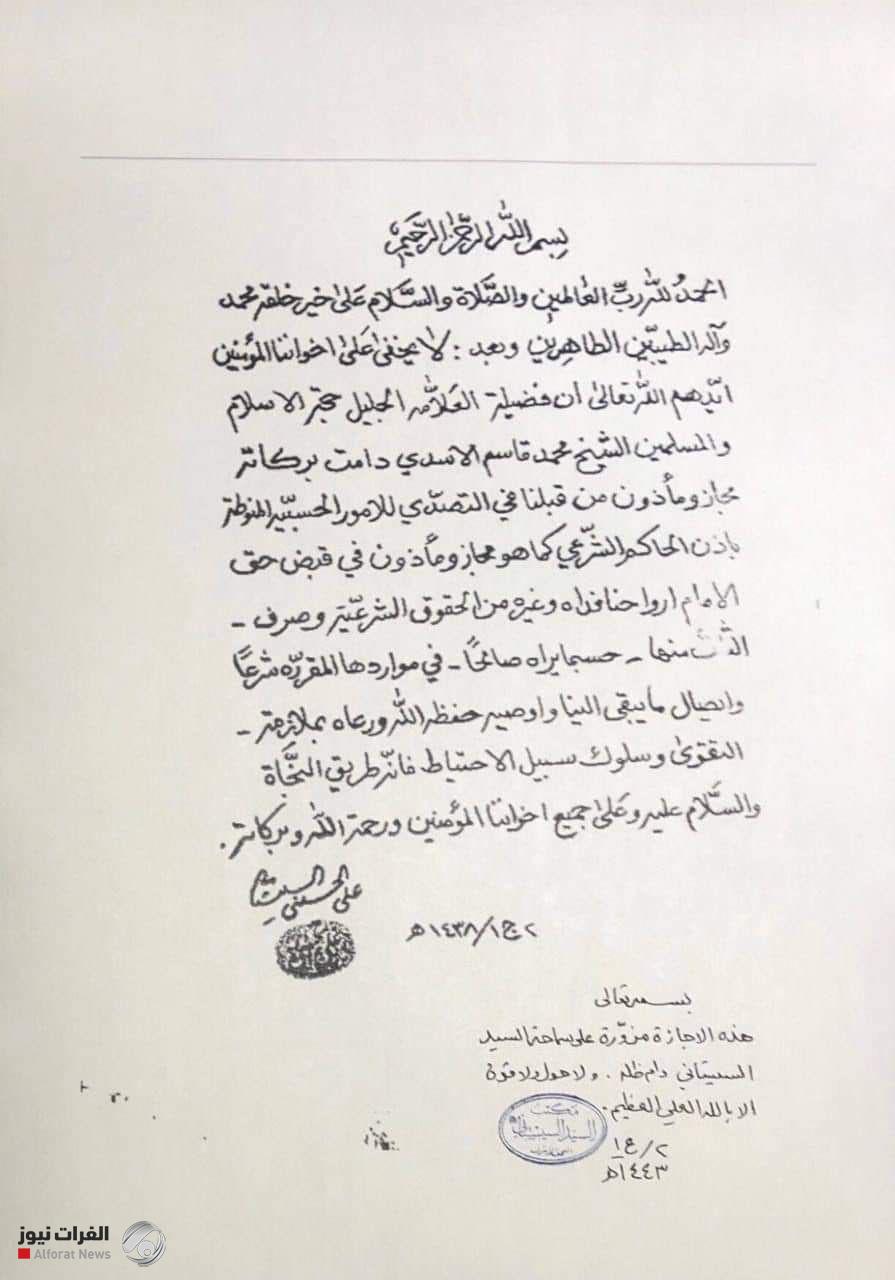 بسم الله الرحمن الرحيم
الحمدُ للّٰه ربِّ العالمين والصَّلاة والسَّلام على خير خلقه محمد
وآله الطيبّين الطاهرين وبعد : لا يخفى على اخواننا المؤمنين
ايّدهم اللّٰه تعالى ان فضيلة العلّامه الجليل حجة الاسلام
والمسلمين الشيخ محمد قاسم الاسدي دامت بركاته
مجاز ومأذون من قبلنا في التصدّي للامور الحسبيّه المنوطة
باذن الحاكم الشّرعي كما هو مجاز ومأذون في قبض حق
الامام ارواحنا فداه وغيره من الحقوق الشرعيّة وصرف -
الثلث منها - حسبما يراه صالحًا - في مواردها المقرره شرعًا
وايصال ما يبقى الينا واوصيه حفظه اللّٰه ورعاه بملازمة -
التقوى وسلوك سبيل الاحتياط فانّه طريق النجَّاة
والسَّلام عليه وعلى جميع اخواننا المؤمنين ورحمة اللّٰه وبركاته .
علي الحسيني السيستاني
٢ ج١/١٤٣٨ هـ
بسمه تعالى
هذه الاجازة مزوّرة على سماحة السيد
السيستاني دام ظله . ولا حول ولا قوة
الا بالله العلي العظيم .
مكتب
السيد السيستاني
٢ / ع١
١٤٤٣ هـ
الفرات نيوز
Alforat News